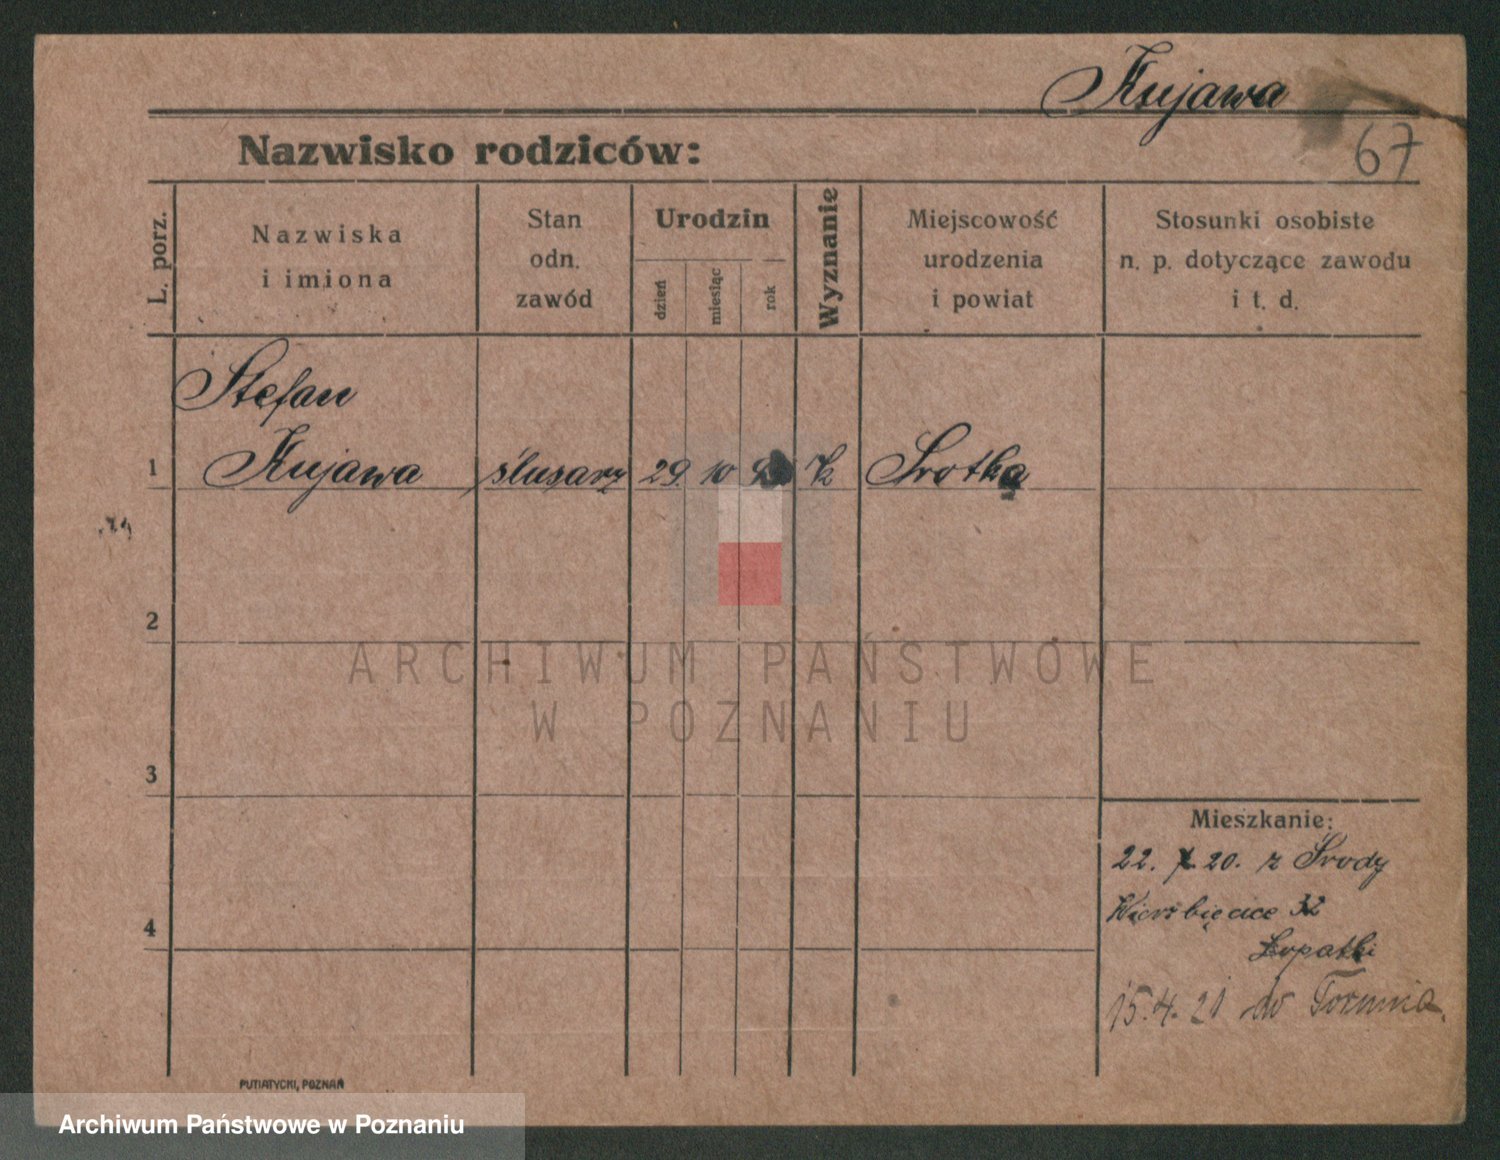 Kujawa
67
Nazwisko rodziców:
L. porz.
Nazwiska
i imiona
Stan
odn.
zawód
Urodzin
dzień
miesiąc
rok
Wyznanie
Miejscowość
urodzenia
i powiat
Stosunki osobiste
n. p. dotyczące zawodu
i t. d.
Stefan
1 Kujawa ślusarz 29. 10 k
2
ARCHIWUM PAŃSTWOWE
W POZNANIU
3
Mieszkanie:
22. 20. z Środy
4 Wierzbięcice 32
Łopatki
15.4.21 do Torunia.
PUTIATYCKI, POZNAŃ
Archiwum Państwowe w Poznaniu